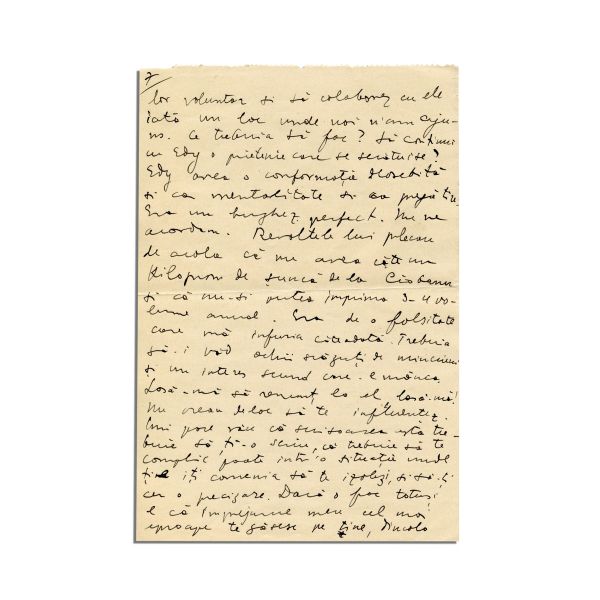 7
lor voluntar și să colaborez cu ele
iată un loc unde noi n'am ajuns.
Ce trebuia să fac? Să continui
cu Edy o prietenie care se scutuise?
Edy avea o conformație deosebită
și ca mentalitate și ca pregătire
Era un burghez perfect. Nu ne
acordam. Revoltele lui plecau
de acolo că nu avea câte un
kilogram de șuncă de la Ciobanu
și că nu-și putea imprima 3-4 vo-
lume anual. Era de o falsitate
care mă infuria câteodată. Trebuia
să-i văd ochii drăguți de minciuni
și un interes scund care-l mânca
Lasă-mă să renunț la el, lasă-mă!
Nu vreau deloc să te influențez.
Îmi pare rău că scrisoarea asta tre-
buie să ți-o scriu, că trebuie să te
complic poate într'o situație unde
ție îți convenia să te izolezi, și să-ți
cer o precizare. Dacă o fac totuși
e că împrejurul meu cel mai
aproape te găsesc pe tine, dincolo